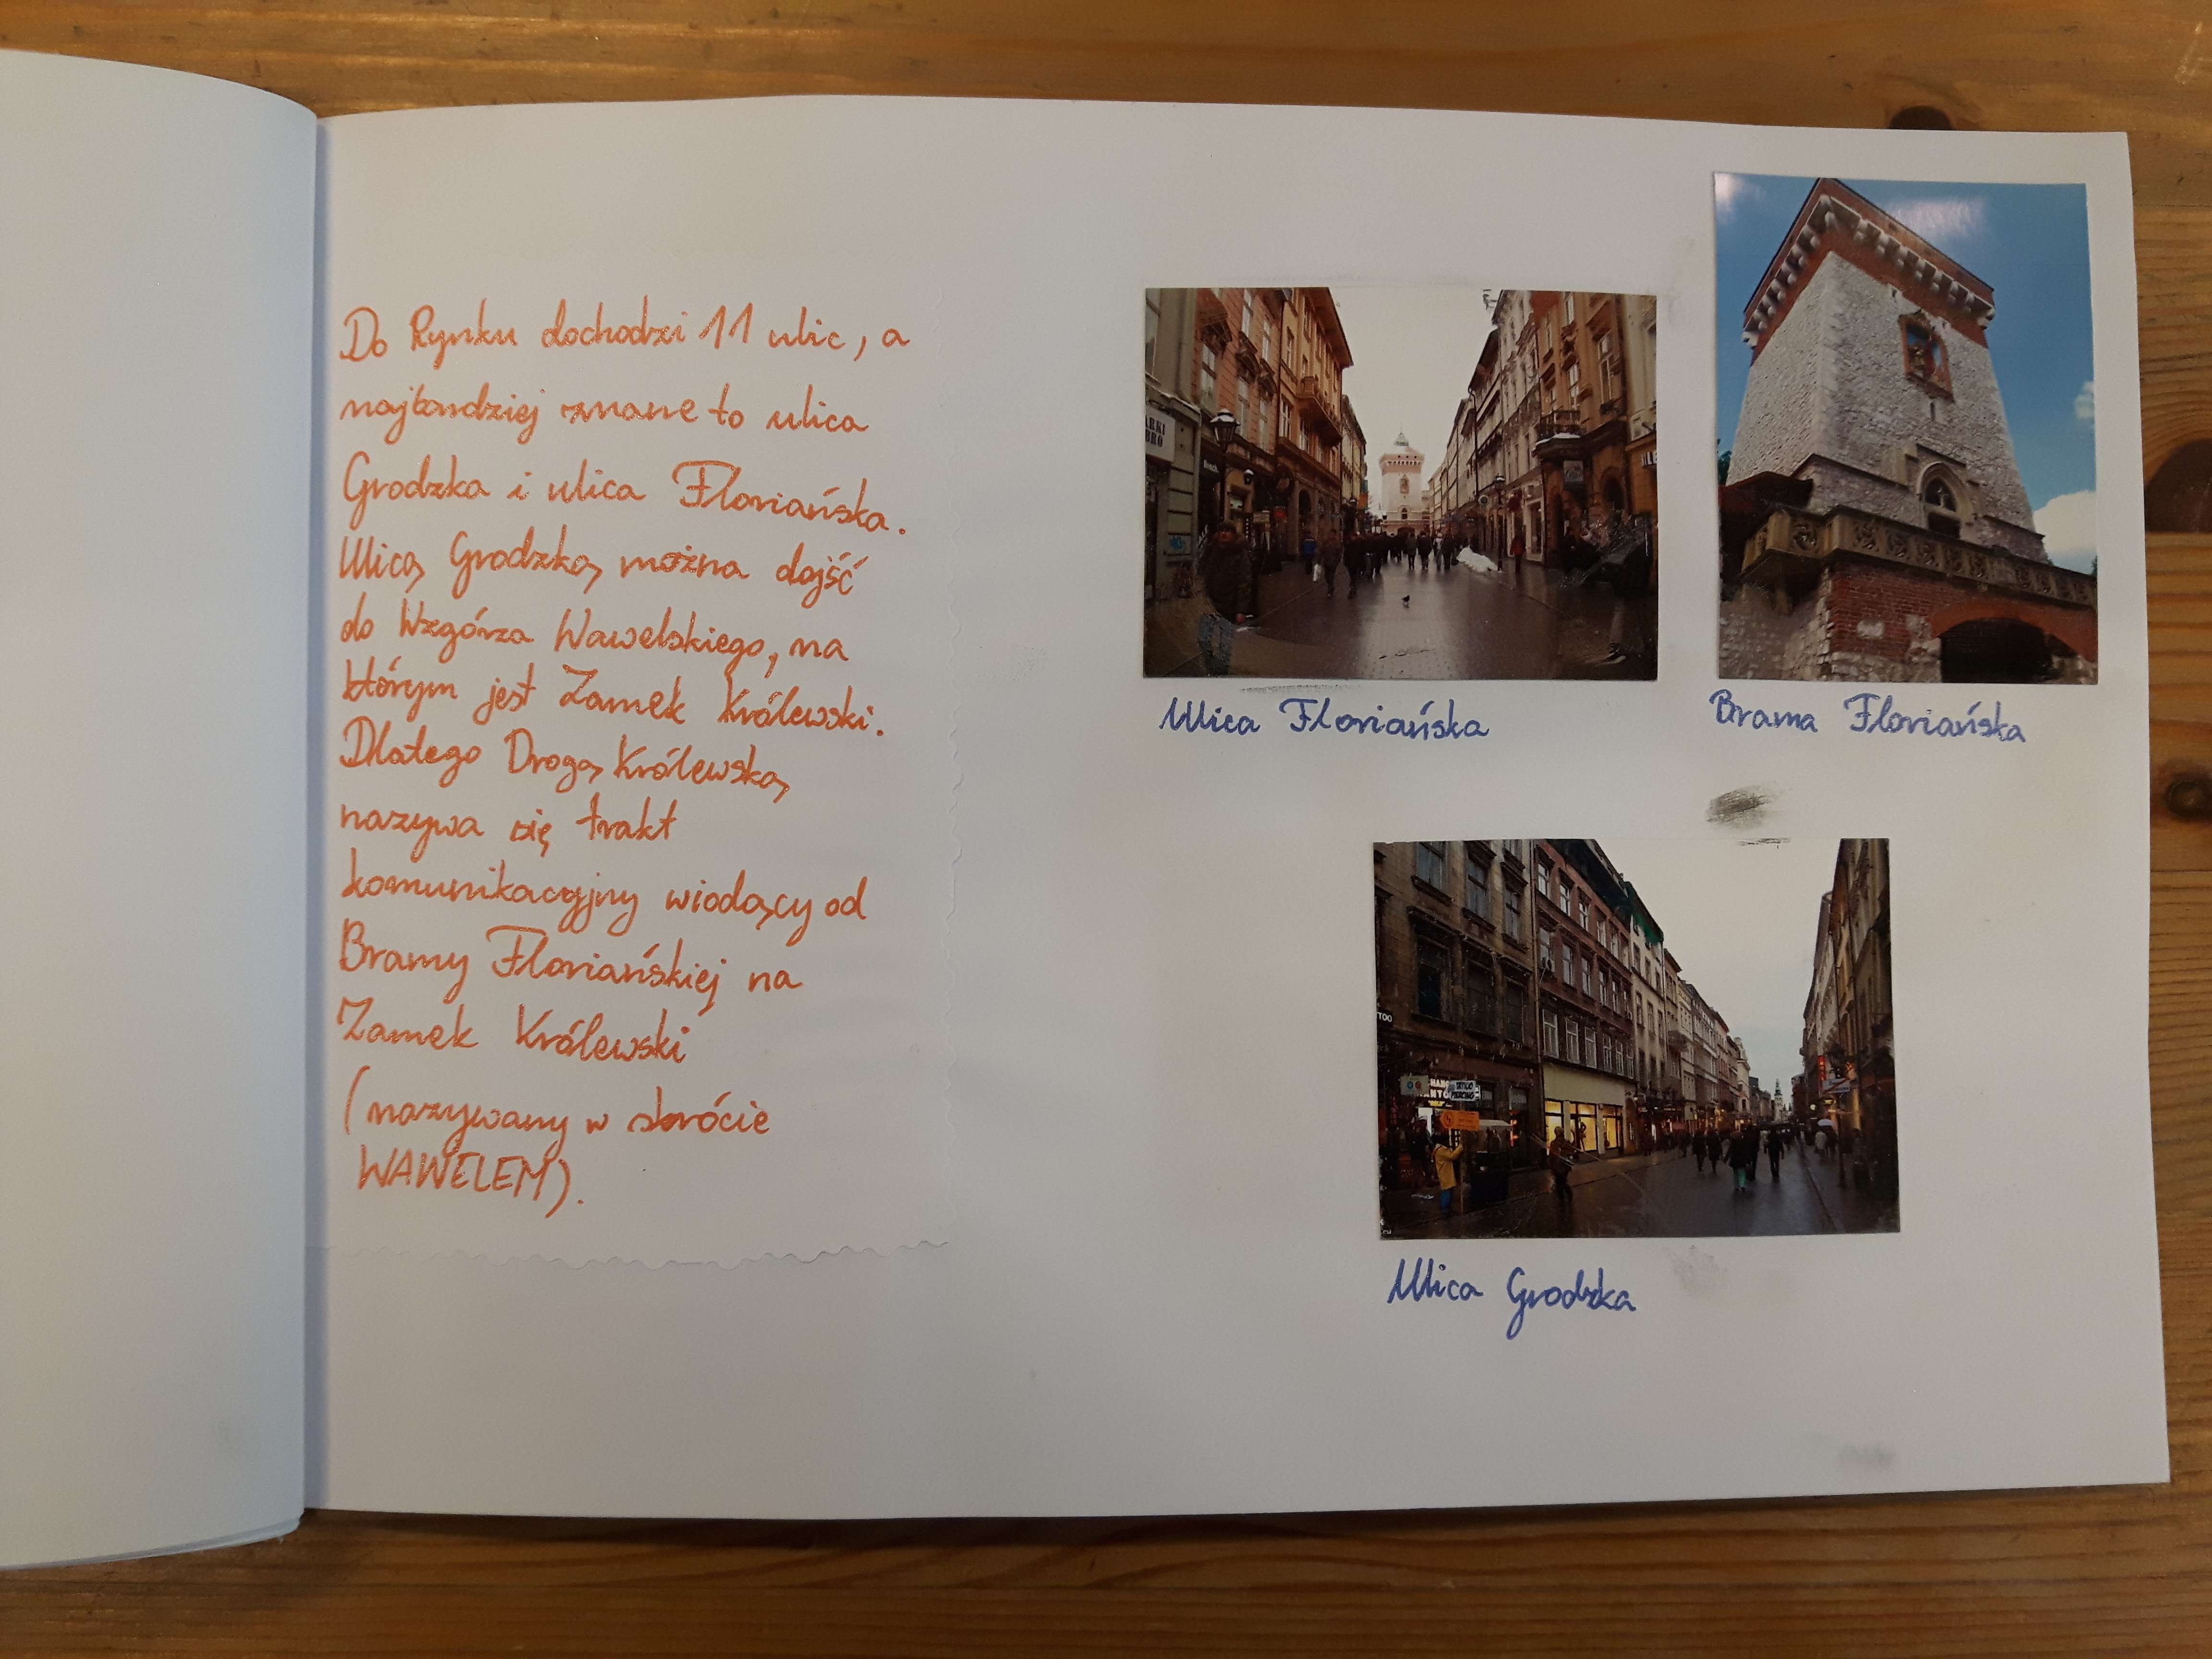 Do Rynku dochodzi 11 ulic, a
najbardziej znane to ulica
Grodzka i ulica Floriańska.
Ulicą Grodzką można dojść
do Wzgórza Wawelskiego, na
którym jest Zamek Królewski.
Dlatego Drogą Królewską
nazywa się trakt
komunikacyjny wiodący od
Bramy Floriańskiej na
Zamek Królewski
(nazywany w skrócie
WAWELEM).
Ulica Floriańska
Brama Floriańska
TOO
TATTOO
PIERCING
Ulica Grodzka